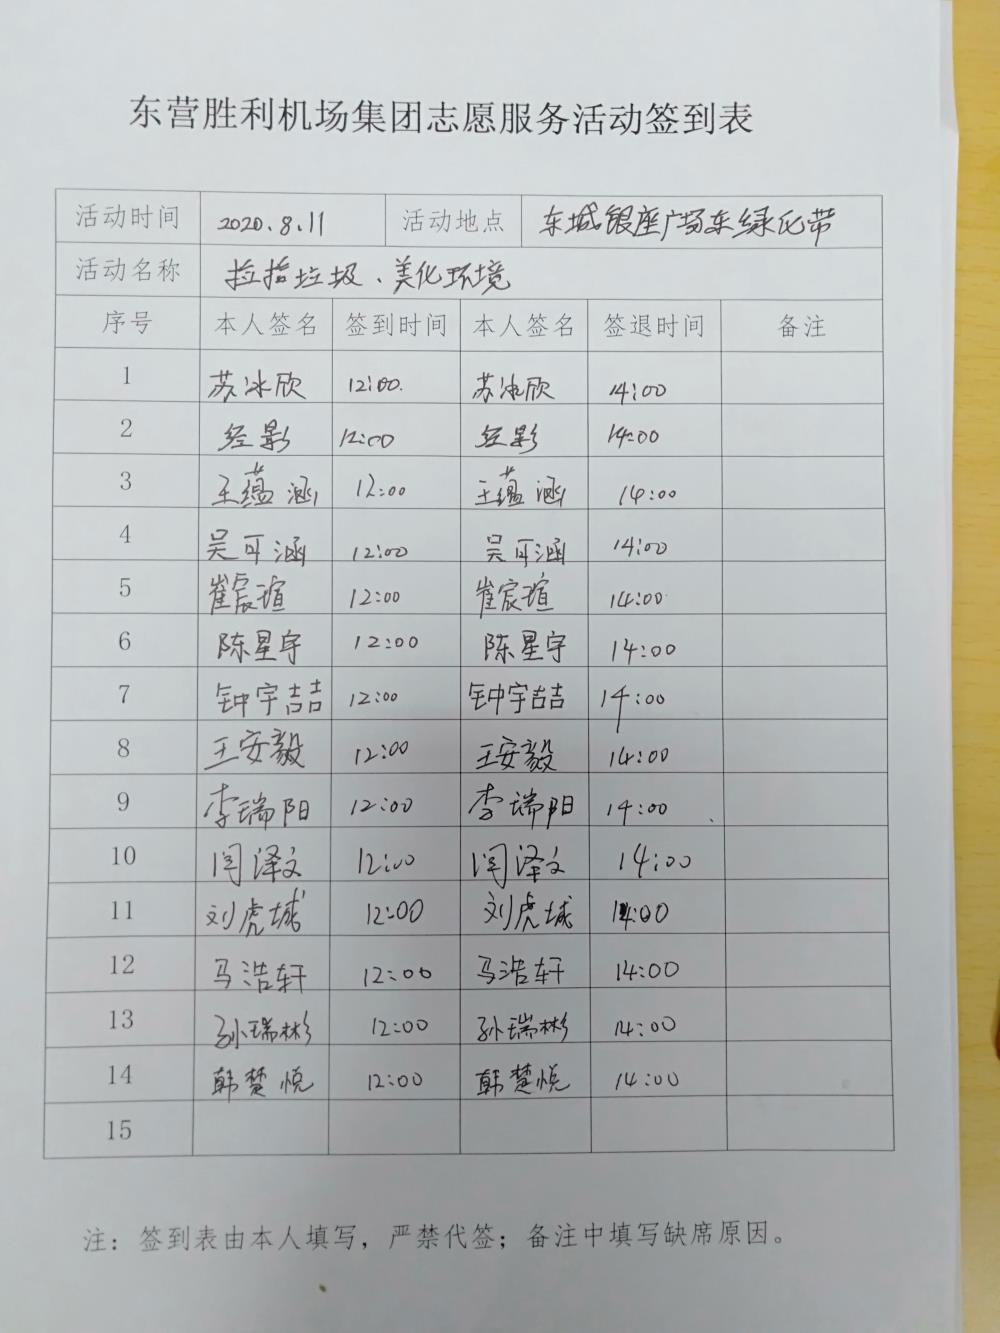 东营胜利机场集团志愿服务活动签到表
活动时间 2020.8.11 活动地点 东城银座广场东绿化带
活动名称 捡拾垃圾、美化环境
序号 本人签名 签到时间 本人签名 签退时间 备注
1 苏冰欣 12:00. 苏冰欣 14:00
2 经影 12:00 经影 14:00
3 王蕴涵 12:00 王蕴涵 14:00
4 吴可涵 12:00 吴可涵 14:00
5 崔宸瑄 12:00 崔宸瑄 14:00
6 陈星宇 12:00 陈星宇 14:00
7 钟宇喆 12:00 钟宇喆 14:00
8 王安毅 12:00 王安毅 14:00
9 李瑞阳 12:00 李瑞阳 14:00
10 闫泽文 12:00 闫泽文 14:00
11 刘虎城 12:00 刘虎城 14:00
12 马浩轩 12:00 马浩轩 14:00
13 孙瑞彬 12:00 孙瑞彬 14:00
14 韩楚悦 12:00 韩楚悦 14:00
15
注：签到表由本人填写，严禁代签；备注中填写缺席原因。